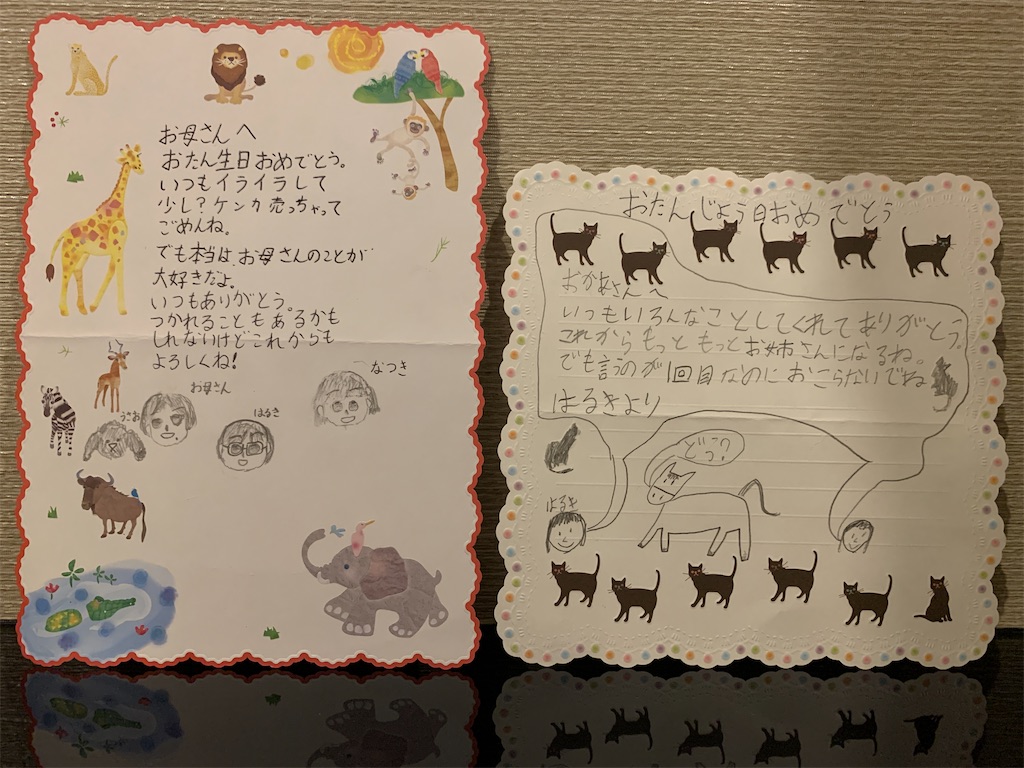 お母さんへ
おたん生日おめでとう。
いつもイライラして
少し?ケンカ売っちゃって
ごめんね。
でも本当は、お母さんのことが
大好きだよ。
いつもありがとう。
つかれることもあるかも
しれないけどこれからも
よろしくね!
なつき
お母さん
はるき
おたんじょう日おめでとう
おかあさんへ
いつもいろんなことしてくれてありがとう。
これからもっともっとお姉さんになるね。
でも言うのが1回目なのにおこらないでね
はるきより
どっち?
はるき